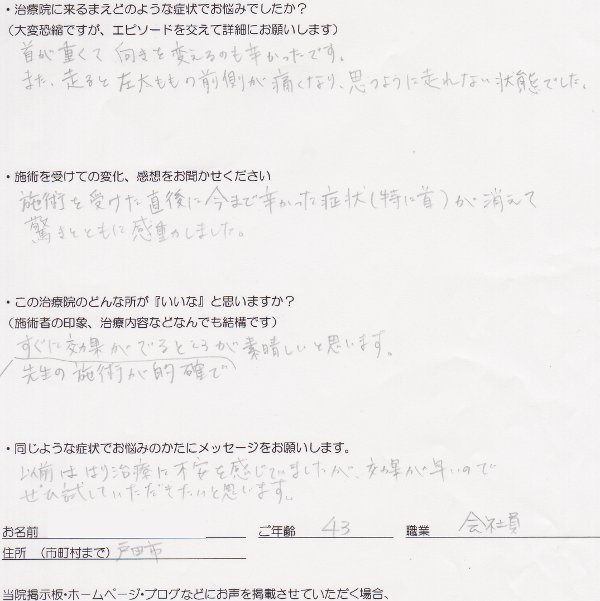 ・治療院に来るまえどのような症状でお悩みでしたか？
(大変恐縮ですが、エピソードを交えて詳細にお願いします)
首が重くて 向きを変えるのも辛かったです。
また、走ると左太ももの前側が痛くなり、思うように走れない状態でした。
・施術を受けての変化、感想をお聞かせください
施術を受けた直後に今まで辛かった症状(特に首)が消えて
驚きとともに感動しました。
・この治療院のどんな所が『いいな』と思いますか？
(施術者の印象、治療内容などなんでも結構です)
すぐに効果がでるところが素晴しいと思います。
先生の施術が的確で
・同じような症状でお悩みのかたにメッセージをお願いします。
以前ははり治療に不安を感じていましたが、効果が早いので
ぜひ試していただきたいと思います。
お名前 ご年齢 43 職業 会社員
住所 (市町村まで) 戸田市
当院掲示板・ホームページ・ブログなどにお声を掲載させていただく場合、